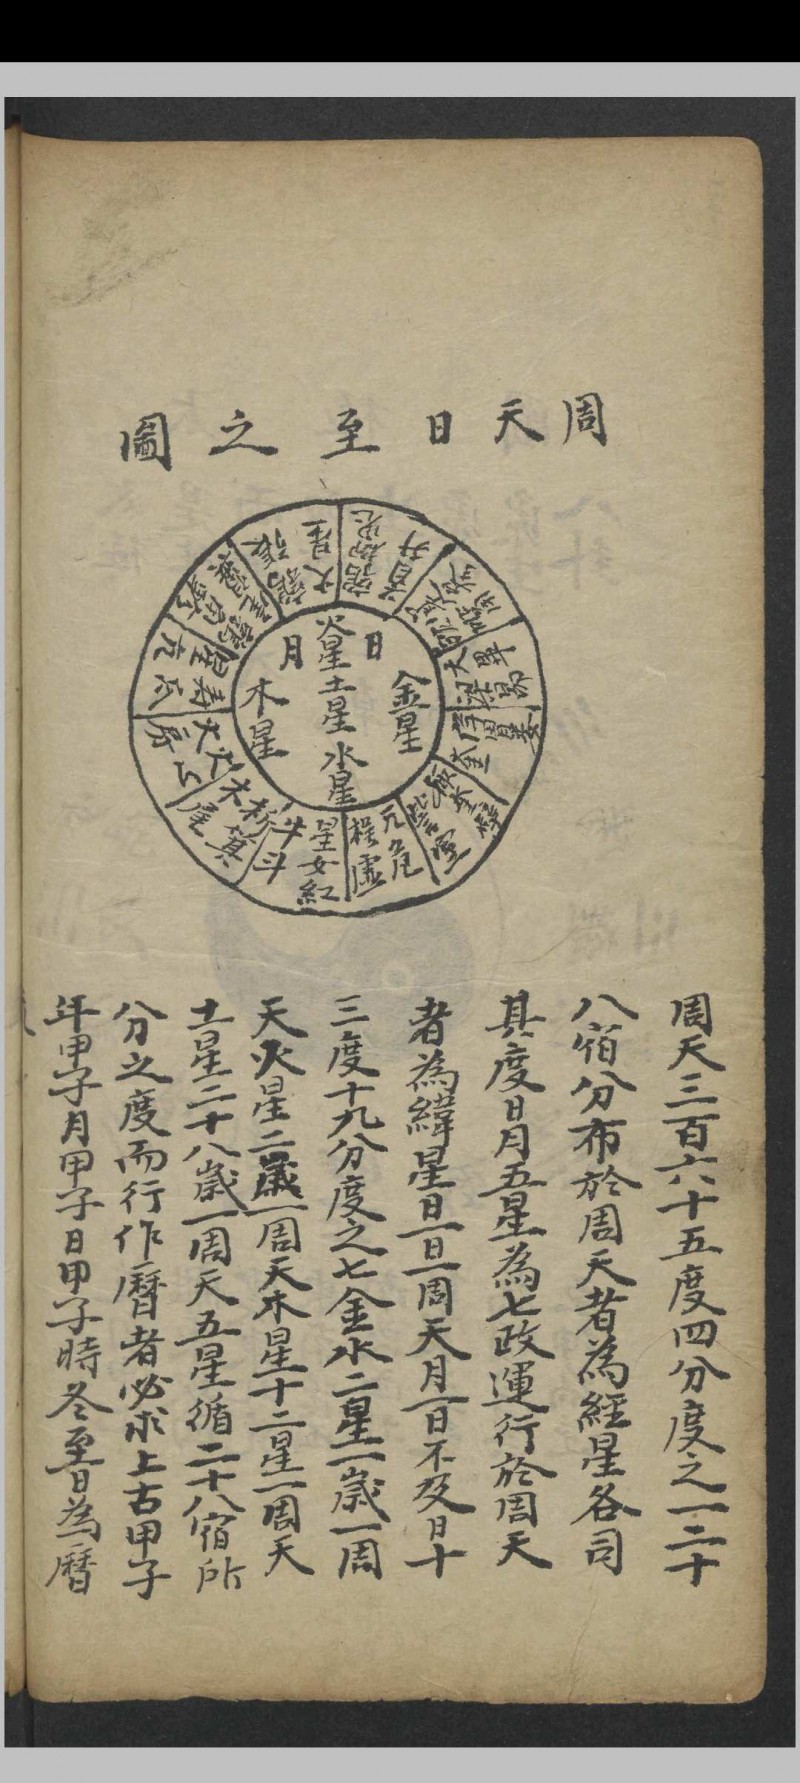 周天日至之圖
日
月
火星
土星
水星
金星
木星
星
大
張
鶉
井
首
畢
大
昴
梁
婁
胃
奎
壁
室
危
元
虛
枵
星女紅
牛斗
析
木
箕
尾
房
心
大
火
亢
氐
壽
星
周天三百六十五度四分度之一二十
八宿分布於周天者為經星各司
其度日月五星為七政運行於周天
者為緯星日一日一周天月一日不及日十
三度十九分度之七金水二星一歲一周
天火星二歲一周天木星十二星一周天
土星二十八歲一周天五星循二十八宿所
分之度而行作曆者必求上古甲子
年甲子月甲子日甲子時冬至日為曆